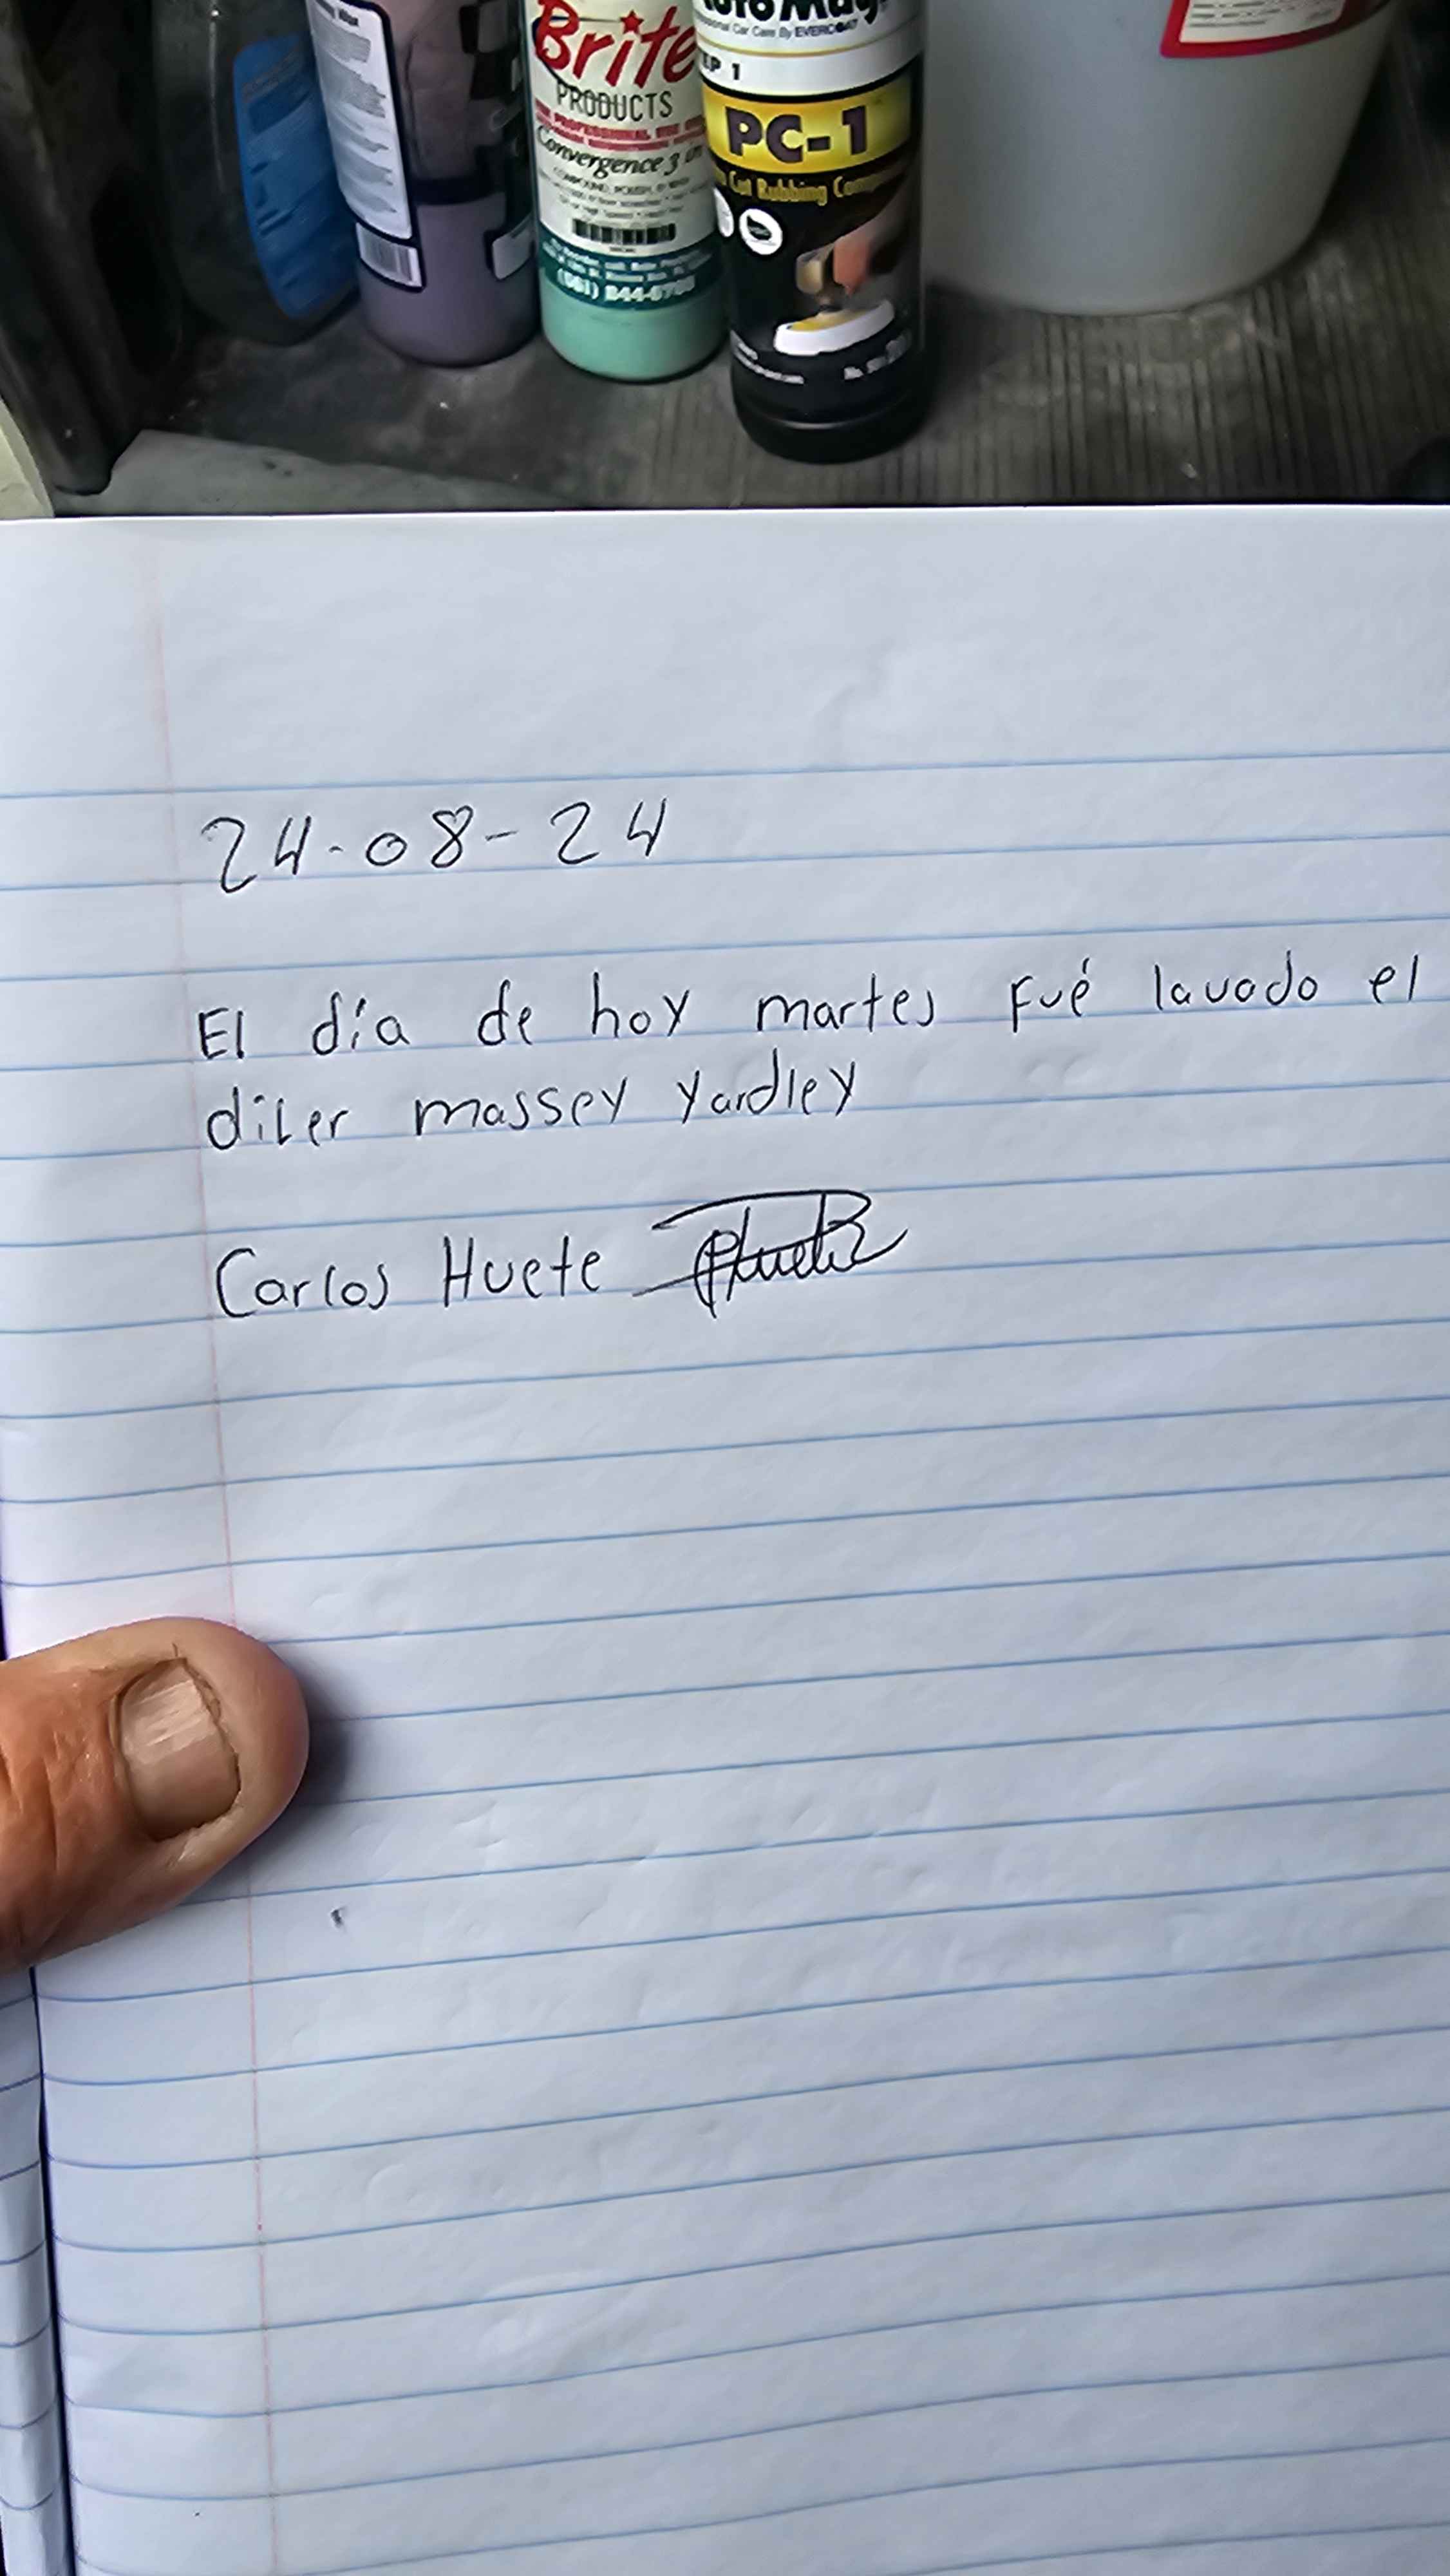 Brite
PRODUCTS
Convergence 3 in
COMPOUND, POLISH,
(561) 844-
AutoMag
Car Care By EVERCOAT
EP 1
PC-1
Cut Rubbing Comp
24-08-24
El día de hoy martes Fué lavado el
diler massey yardley
Carlos Huete